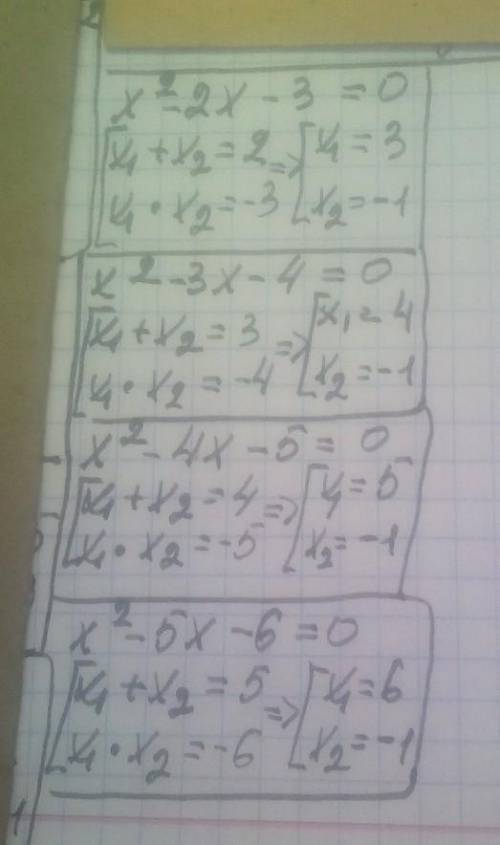 x² - 2x - 3 = 0
[x₁ + x₂ = 2 => [x₁ = 3
x₁ · x₂ = -3 x₂ = -1
x² - 3x - 4 = 0
[x₁ + x₂ = 3 => [x₁ = 4
x₁ · x₂ = -4 x₂ = -1
x² - 4x - 5 = 0
[x₁ + x₂ = 4 => [x₁ = 5
x₁ · x₂ = -5 x₂ = -1
x² - 5x - 6 = 0
[x₁ + x₂ = 5 => [x₁ = 6
x₁ · x₂ = -6 x₂ = -1